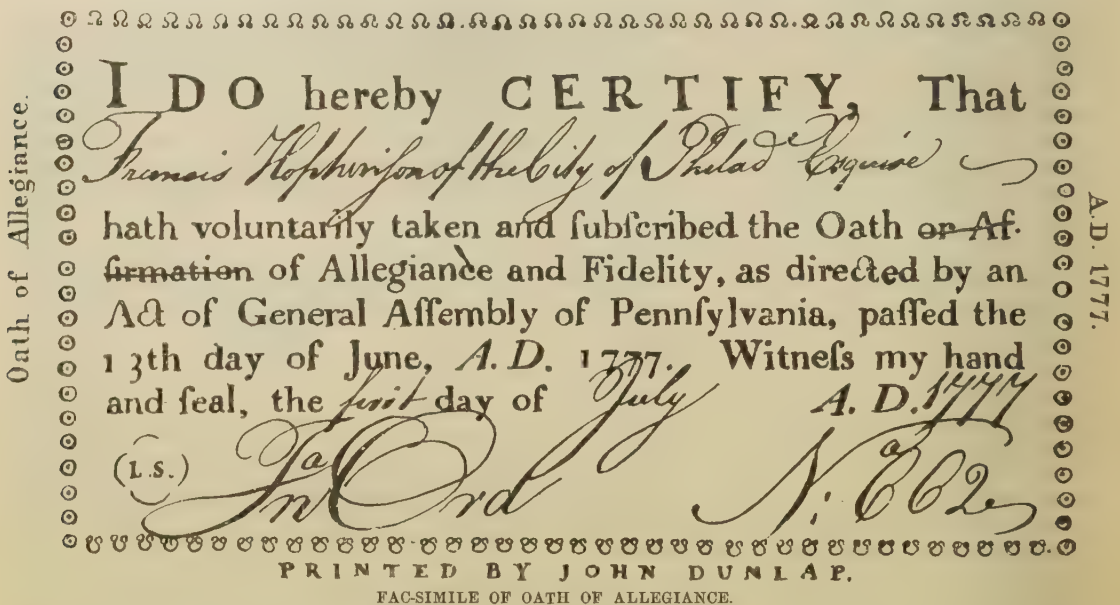 Oath of Allegiance.
I DO hereby CERTIFY, That
Francis Hopkinſon of the City of Philad.ª Esquire
hath voluntarily taken and ſubſcribed the Oath or Af-
firmation of Allegiance and Fidelity, as directed by an
Act of General Aſſembly of Pennſylvania, paſſed the
13th day of June, A. D. 1777. Witneſs my hand
and ſeal, the first day of July A. D. 1777
(L.S.) Jnª Ord
A.D. 1777.
PRINTED BY JOHN DUNLAP.
FAC-SIMILE OF OATH OF ALLEGIANCE.